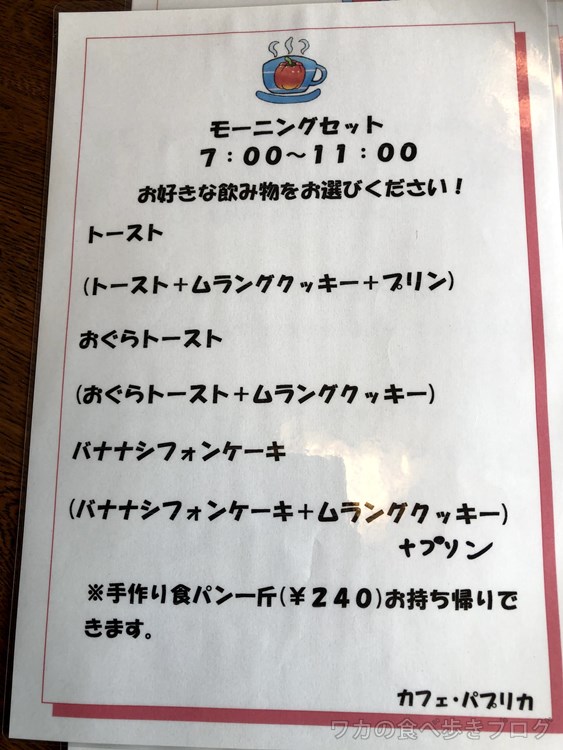 モーニングセット
７：００～１１：００
お好きな飲み物をお選びください！
トースト
(トースト＋ムラングクッキー＋プリン)
おぐらトースト
(おぐらトースト＋ムラングクッキー)
バナナシフォンケーキ
(バナナシフォンケーキ＋ムラングクッキー)
+プリン
※手作り食パン一斤(￥２４０)お持ち帰りで
きます。
カフェ・パプリカ
ワカの食べ歩きブログ